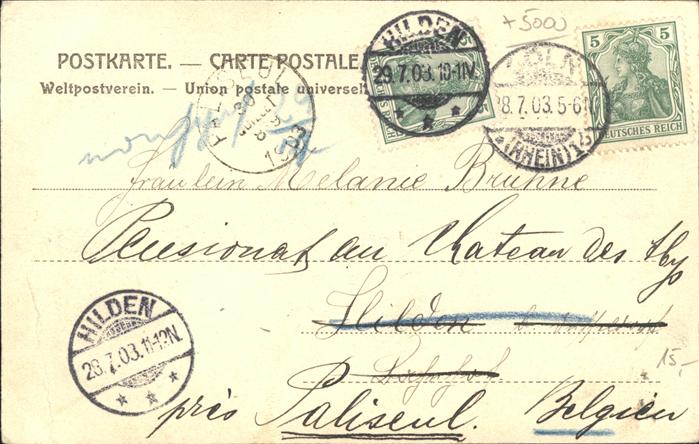 +5000
POSTKARTE. — CARTE POSTALE.
Weltpostverein. — Union postale universelle
HILDEN
29.7.03.10-11V.
* * *
CÖLN
28.7.03.5-6
(RHEIN)
5
DEUTSCHES REICH
JUILLET
1903
Fräulein Melanie Bruhne
Pensionat au Chateau des Thys
Hilden
HILDEN
28.7.03.11-12N.
* * *
15,-
près Paliseul. Belgien